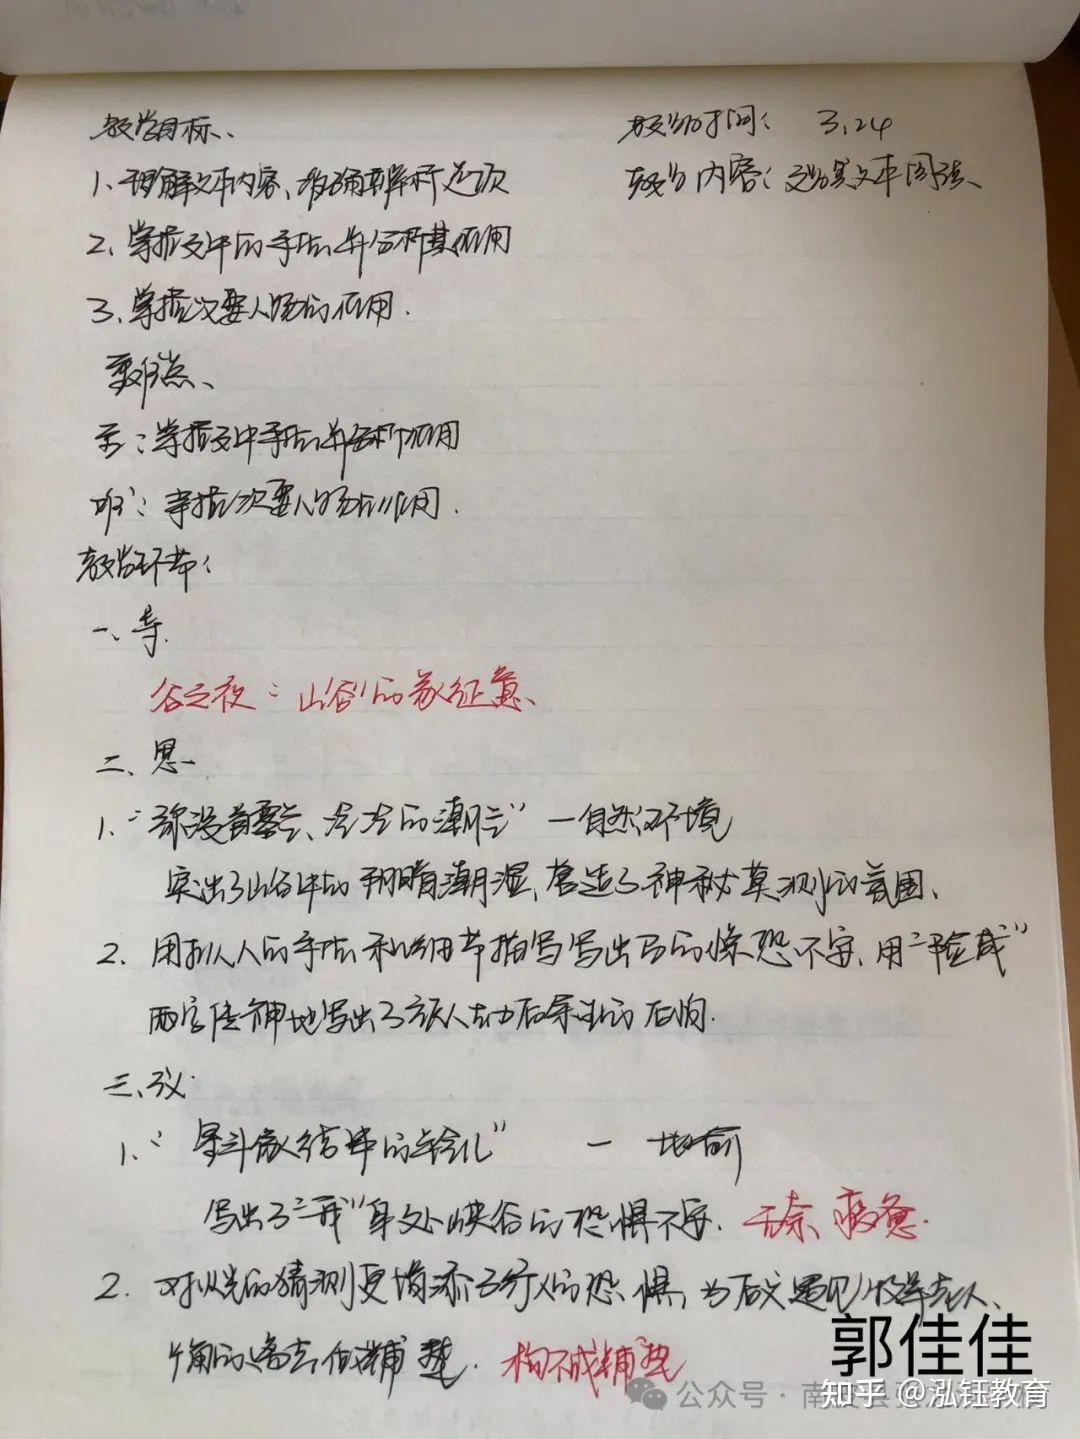 教学目标、
教学时间：3.24
1、理解文本内容、准确辨析选项
教学内容：文学类文本阅读、
2、掌握文中的手法，并分析其作用
3、掌握次要人物的作用.
重难点、
重：掌握文中手法，并分析作用
难：掌握次要人物的作用.
教学环节：
一、导.
谷之夜：山谷的象征意、
二、思
1、"的潮" —自然环境
突出了山谷中的阴暗潮湿，营造了神秘莫测的氛围、
2、用拟人的手法和细节描写写出马的惊恐不安，用"脸
两字传神地写出了旅人劫后余生的
三、议.
1、"星斗像结冻的" — 比喻
写出了"我"身处峡谷的恐惧不安. 无奈、疲惫.
2、对火光的猜测更增添了行人的恐惧，为后文遇见
的 作铺垫. 构不成铺垫
郭佳佳
公众号·南皮县
知乎 @泓钰教育